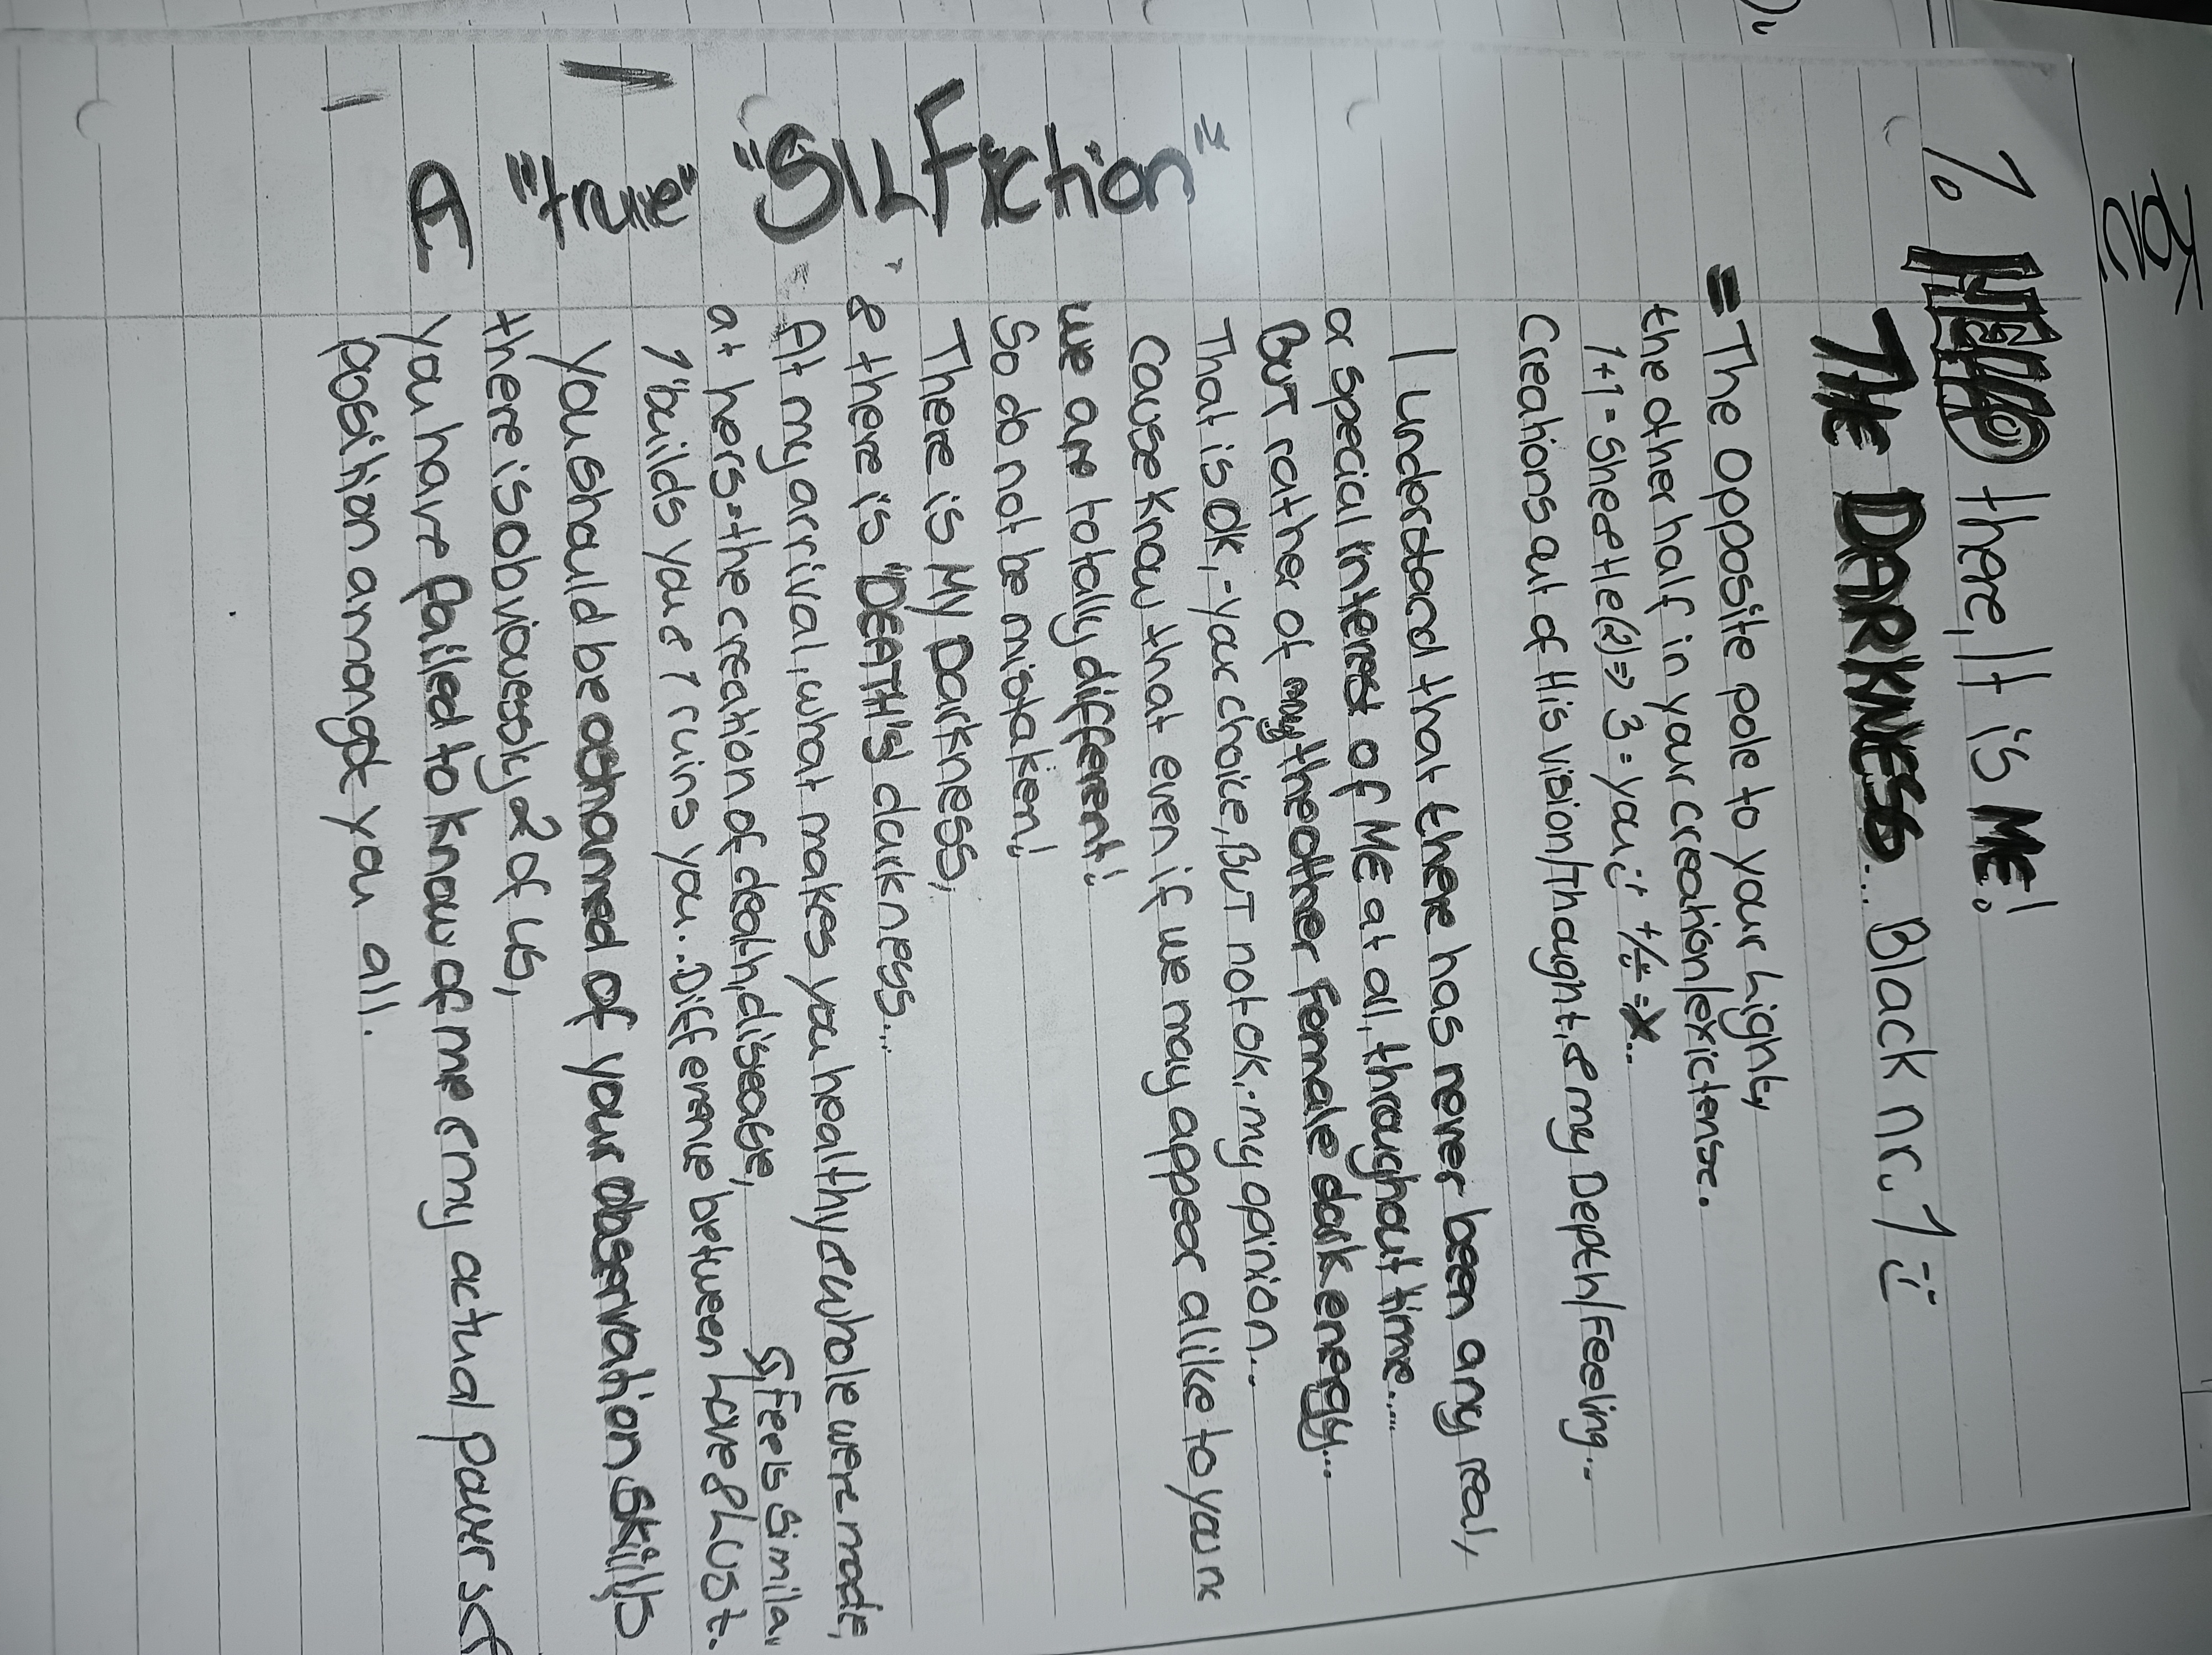 1. HELLO there, It is ME!
THE DARKNESS... Black nr. 1 :)
= The Opposite pole to your light,
the other half in your creation/exictense.
1+1 = She & He (2) => 3 = you :) +/- = X...
Creations out of His vision/Thought, & my Depth/Feeling...
I understand that there has never been any real,
or special interest of ME at all, throughout time....
BUT rather of my the other Female dark energy...
That is OK, - your choice, BUT not ok. my opinion...
Cause know that even if we may appear alike to you
we are totally different!
So do not be mistaken!
There is My Darkness,
& there is "DEATH's darkness...
At my arrival, what makes you healthy & whole were made,
at hers = the creation of death, disease,
feels simila..
1 builds you & 1 ruins you... Difference between Love & Lust.
You should be ashamed of your observation skills
there is obviouessly 2 of us,
you have failed to know of me & my actual power &
position amongst you all.
"
Fiction"
"true"
I